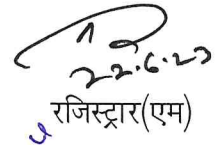 22.6.23
रजिस्ट्रार(एम)